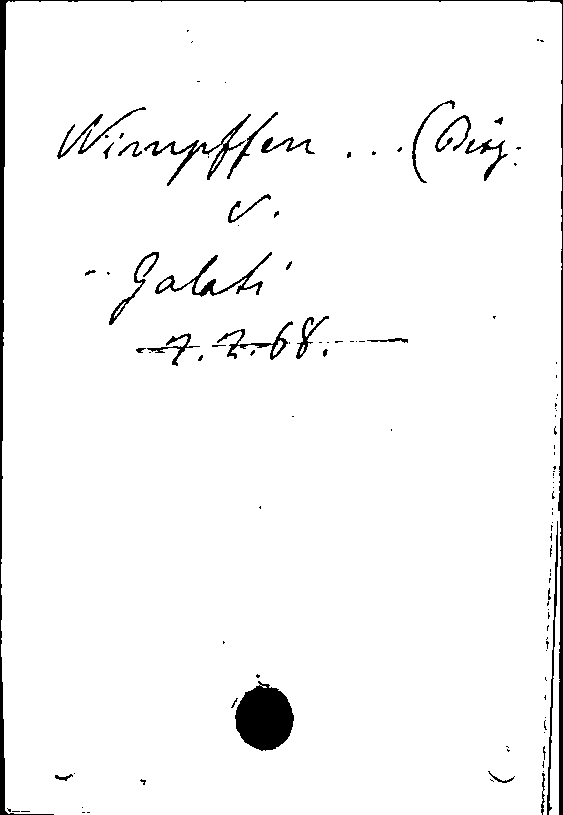 Wimpffen ... (Dirig.
v.
Galati
7.7.68.